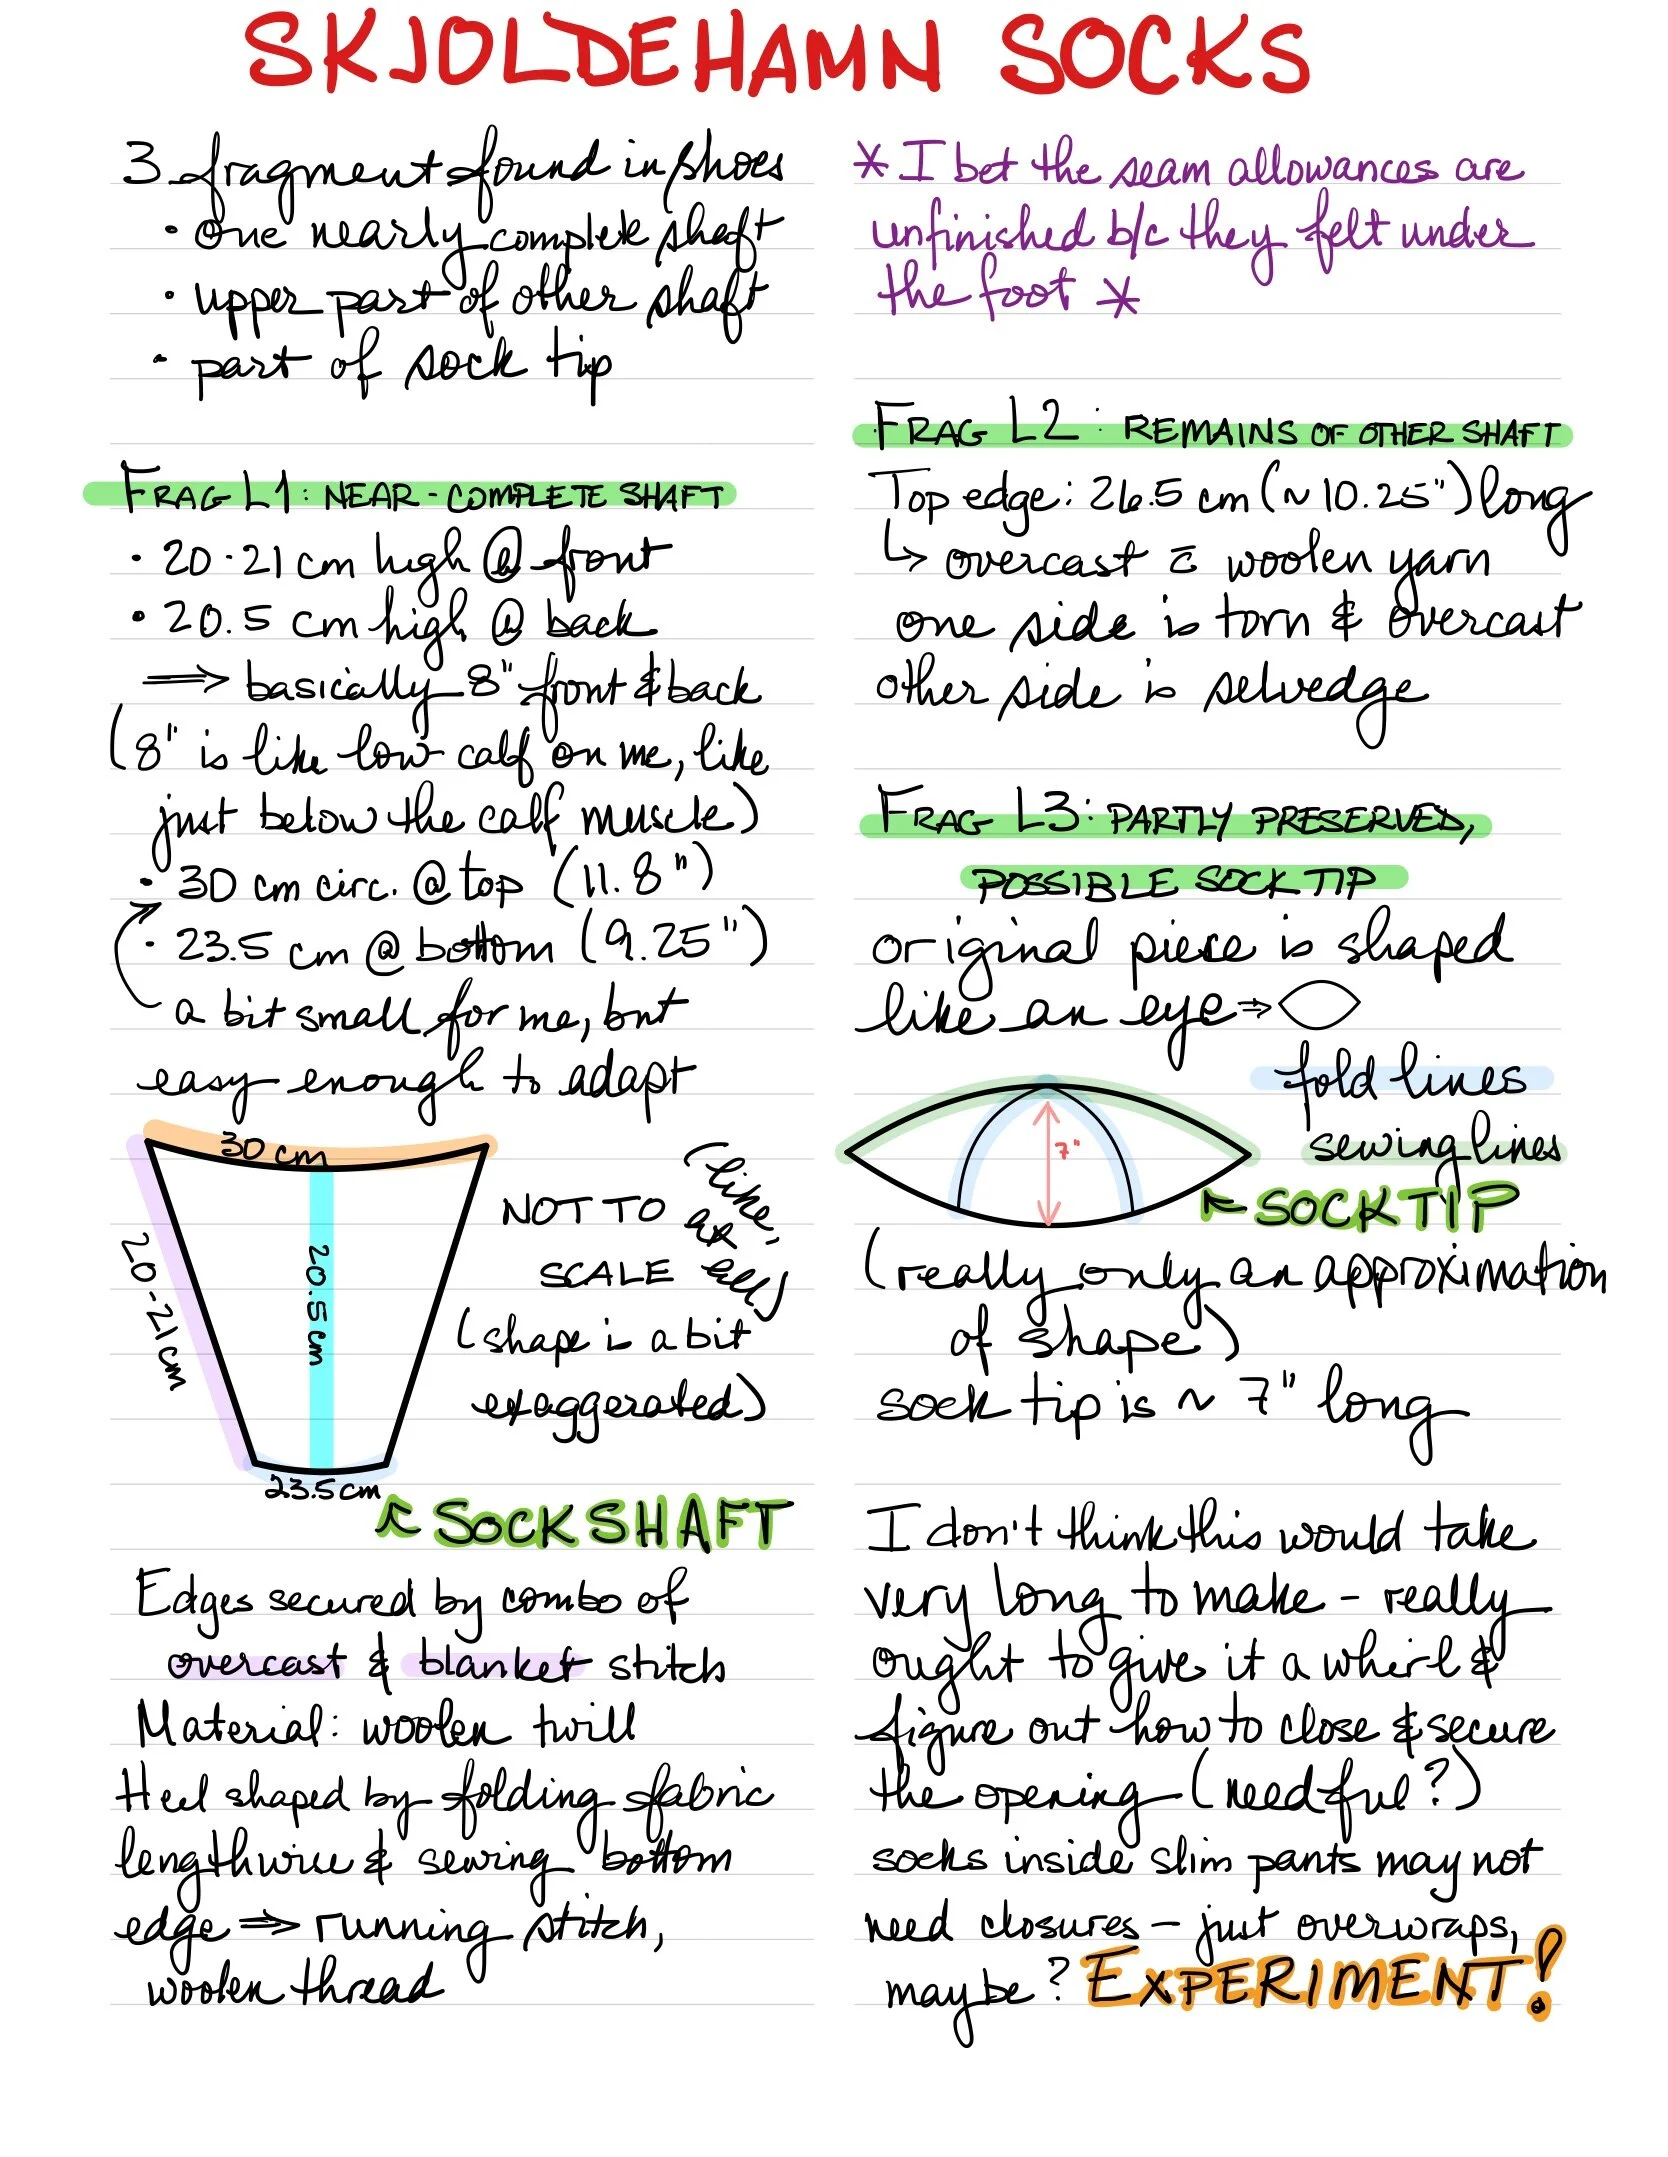 SKJOLDEHAMN SOCKS
3 fragment found in shoes
• one nearly complete shaft
• upper part of other shaft
• part of sock tip
FRAG L1: NEAR-COMPLETE SHAFT
• 20-21 cm high @ front
• 20.5 cm high @ back
⇒ basically 8" front & back
(8" is like low calf on me, like
just below the calf muscle)
• 30 cm circ. @ top (11.8")
• 23.5 cm @ bottom (9.25")
a bit small for me, but
easy enough to adapt
30 cm
20-21 cm
20.5 cm
23.5 cm
NOT TO
SCALE
(like,
at
all)
(shape is a bit
exaggerated)
↖ SOCK SHAFT
Edges secured by combo of
overcast & blanket stitch
Material: woolen twill
Heel shaped by folding fabric
lengthwise & sewing bottom
edge ⇒ running stitch,
woolen thread
* I bet the seam allowances are
unfinished b/c they felt under
the foot *
FRAG L2: REMAINS OF OTHER SHAFT
Top edge: 26.5 cm (~10.25") long
↳ overcast c̄ woolen yarn
one side is torn & overcast
other side is selvedge
FRAG L3: PARTLY PRESERVED,
POSSIBLE SOCK TIP
original piece is shaped
like an eye ⇒
fold lines
sewing lines
7"
↖ SOCK TIP
(really only an approximation
of shape)
sock tip is ~ 7" long
I don't think this would take
very long to make - really
ought to give it a whirl &
figure out how to close & secure
the opening (needful?)
socks inside slim pants may not
need closures - just overwraps,
maybe? EXPERIMENT!